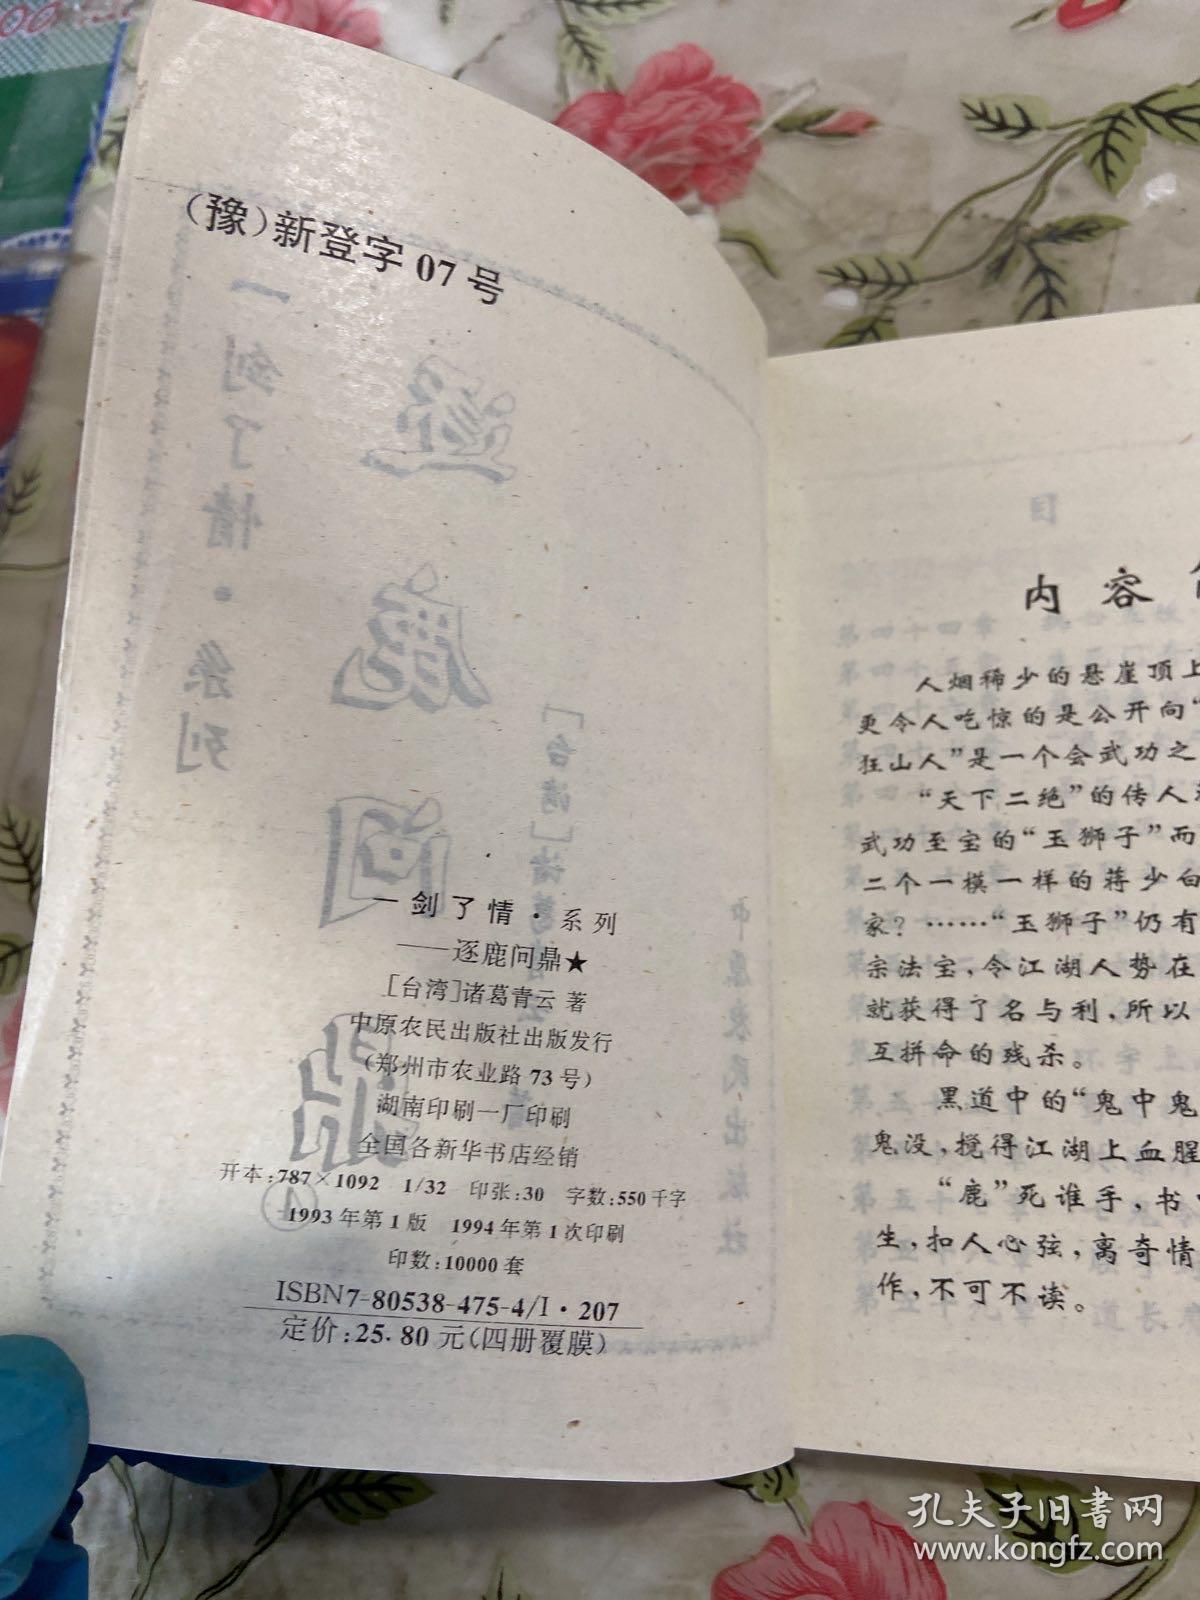 （豫）新登字07号
一剑了情·系列
——逐鹿问鼎★
［台湾］诸葛青云 著
中原农民出版社出版发行
（郑州市农业路73号）
湖南印刷一厂印刷
全国各新华书店经销
开本：787×1092 1/32 印张：30 字数：550千字
1993年第1版 1994年第1次印刷
印数：10000套
ISBN7-80538-475-4/I·207
定价：25.80元（四册覆膜）
内容
人烟稀少的悬崖顶上
更令人吃惊的是公开向“
狂山人”是一个会武功之
“天下二绝”的传人
武功至宝的“玉狮子”而
二个一模一样的蒋少白
家？……“玉狮子”仍有
宗法宝，令江湖人势在
就获得了名与利，所以
互拼命的残杀。
黑道中的“鬼中鬼
鬼没，搅得江湖上血腥
“鹿”死谁手，书中
生，扣人心弦，离奇情
作，不可不读。
孔夫子旧书网
www.kongfz.com